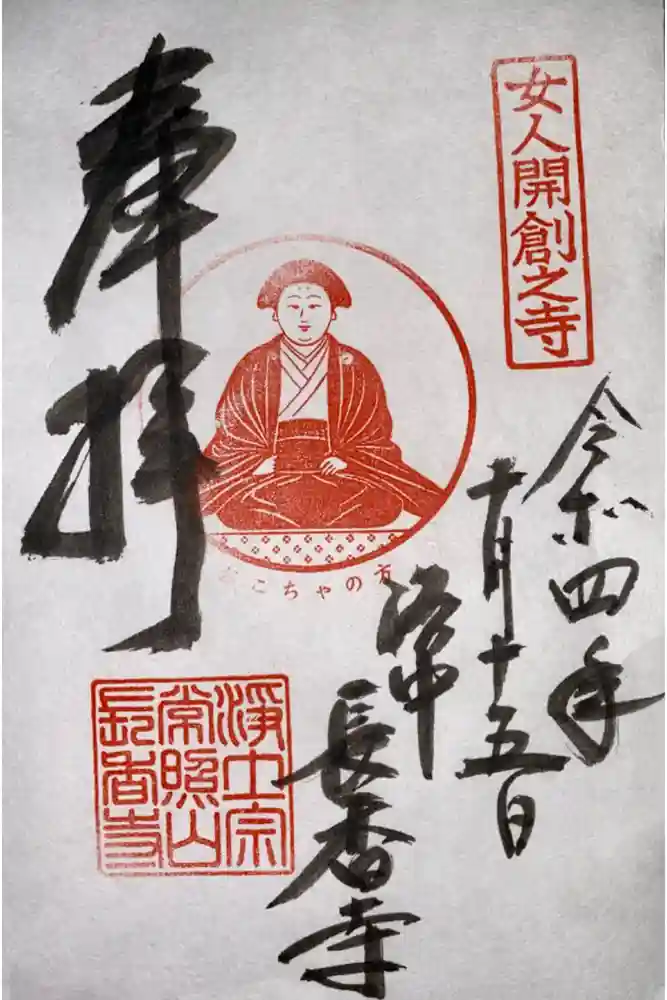 女人開創之寺
令和四年
十月十五日
洛中
長香寺
奉拝
こちゃの方
淨土宗
常照山
長香寺